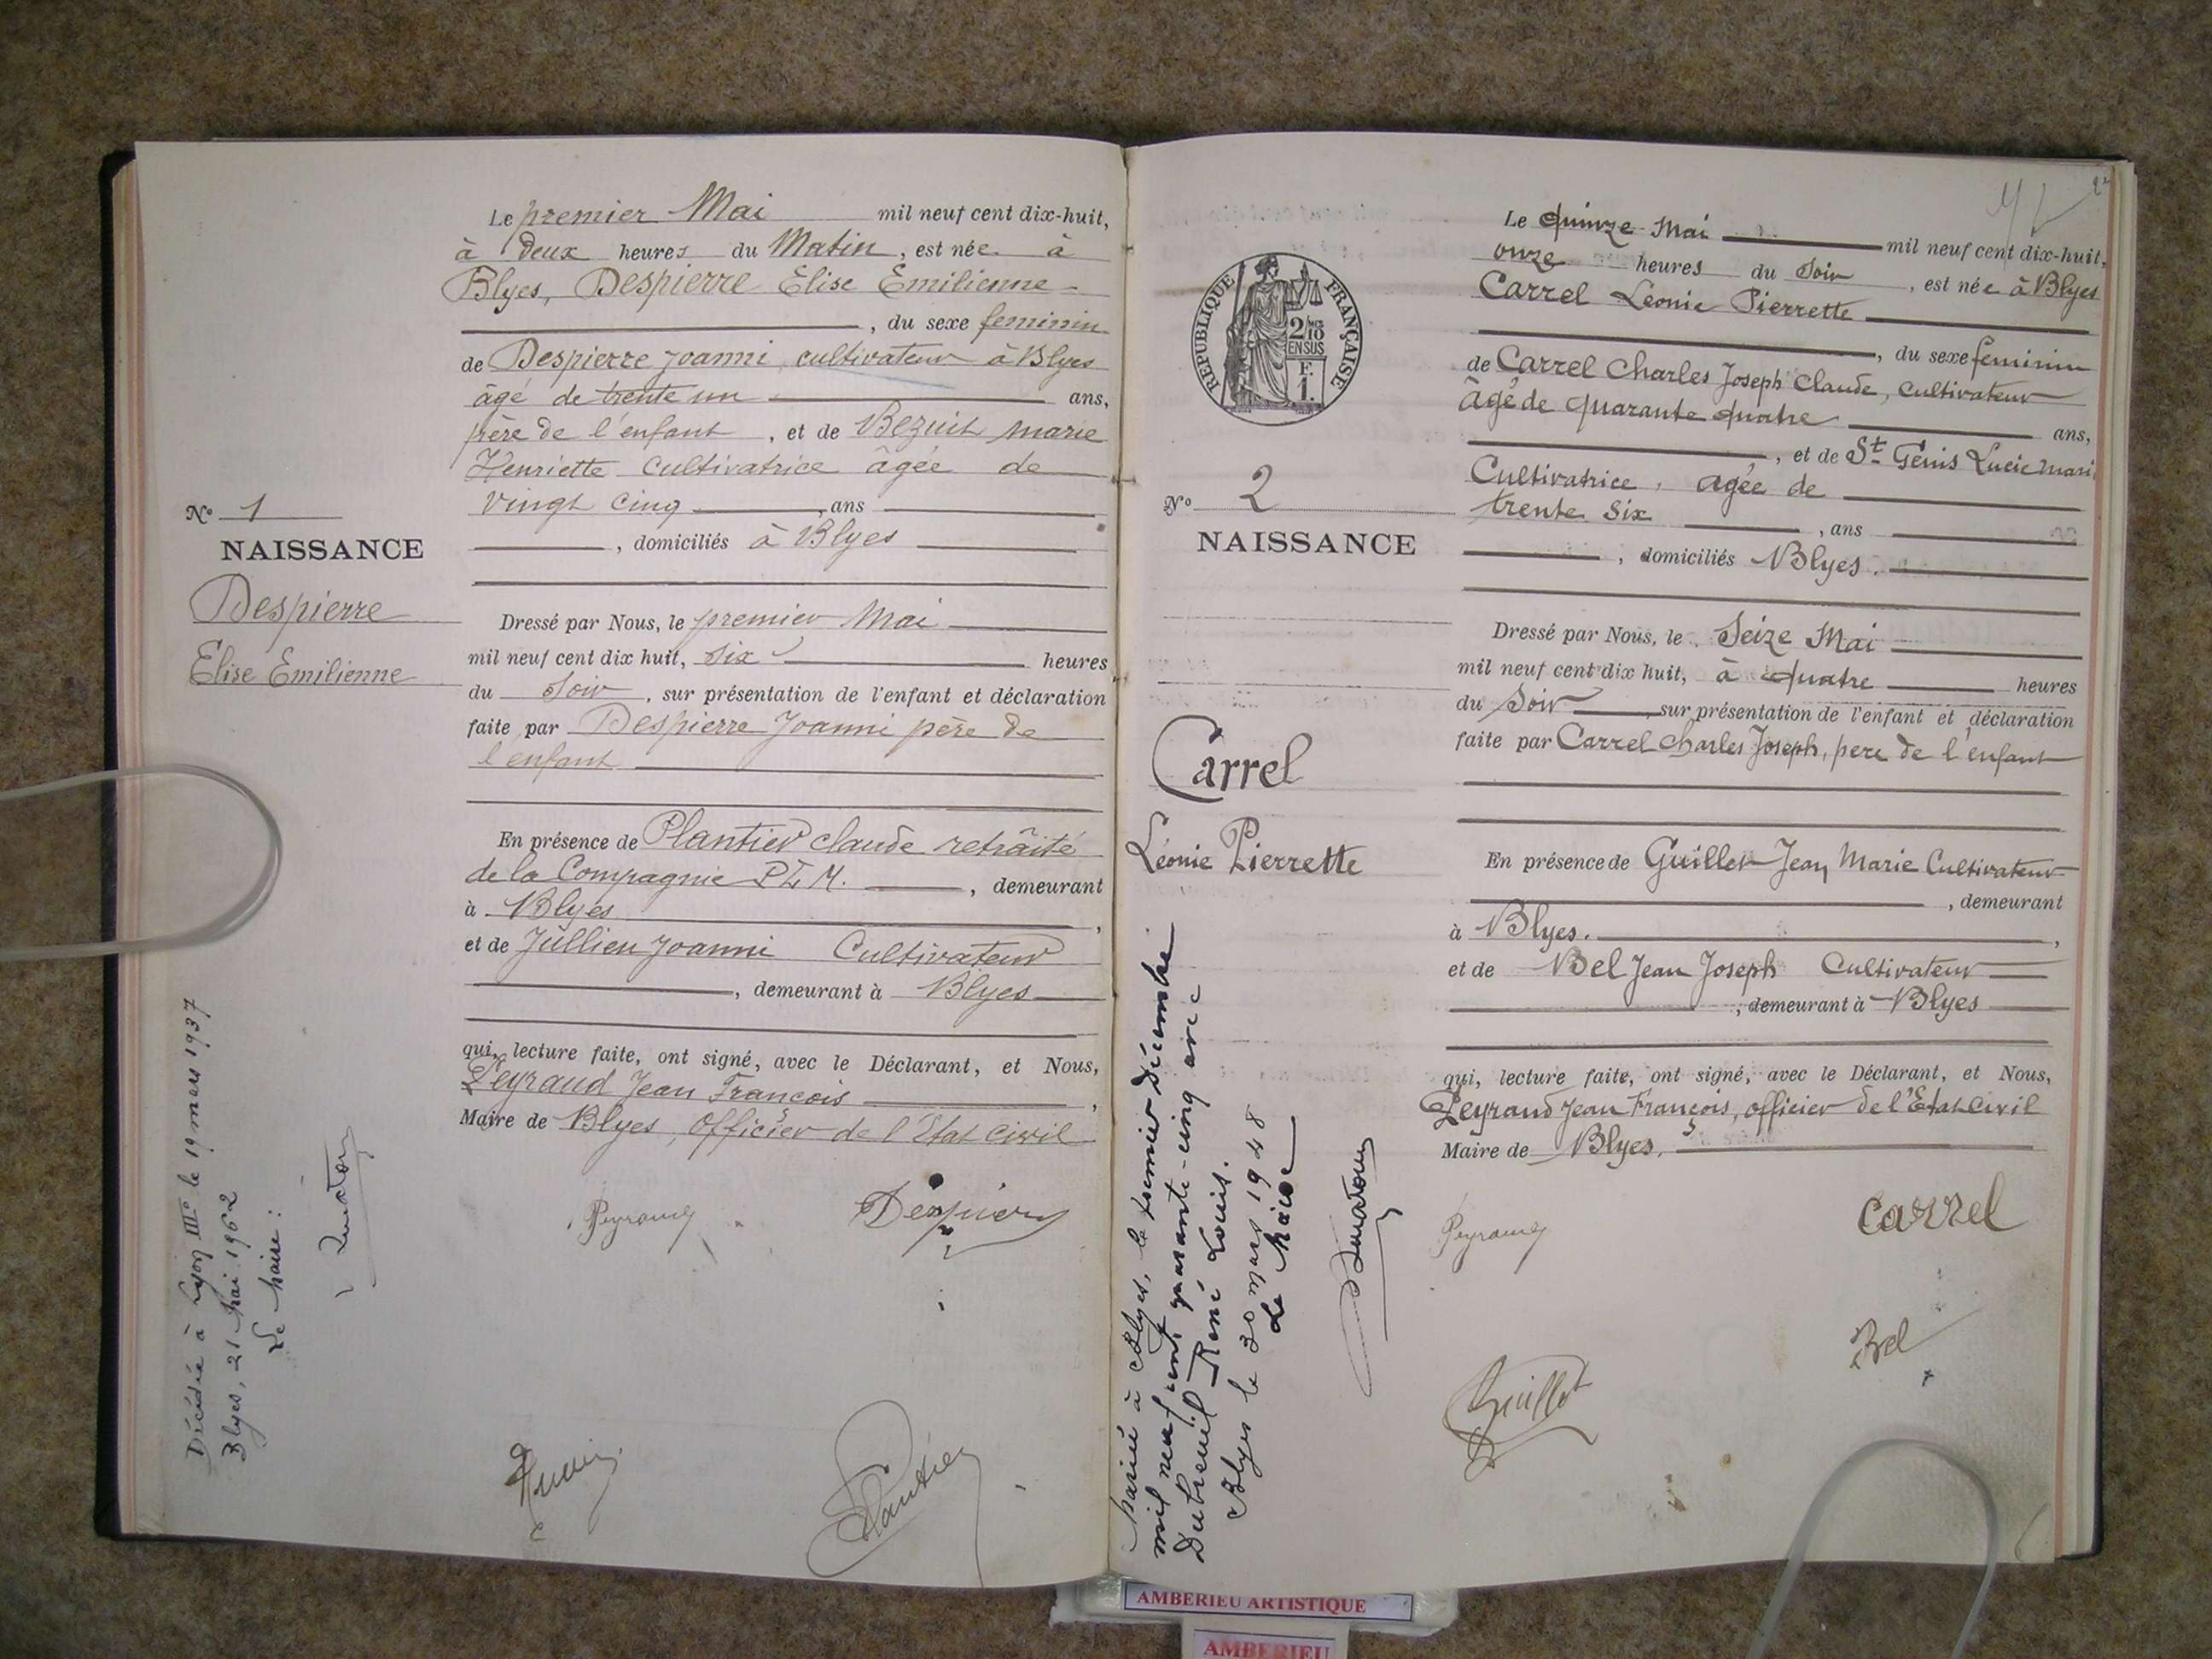 Le premier Mai mil neuf cent dix-huit,
à deux heures du Matin, est née à
Blyes, Despierre Elise Emilienne -
, du sexe feminin
de Despierre Joanni, cultivateur à Blyes
âgé de trente un ans,
père de l'enfant, et de Bezuit marie
Henriette cultivatrice âgée de
vingt cinq, ans
, domiciliés à Blyes
N° 1
NAISSANCE
Despierre
Elise Emilienne
Dressé par Nous, le premier Mai
mil neuf cent dix huit, six heures
du Soir, sur présentation de l'enfant et déclaration
faite par Despierre Joanni père de
l'enfant
En présence de Plantier claude retraité
de la Compagnie P.L.M., demeurant
à Blyes,
et de Jullien Joanni Cultivateur
, demeurant à Blyes
qui, lecture faite, ont signé, avec le Déclarant, et Nous,
Peyraud Jean François,
Maire de Blyes, Officier de l'Etat civil
Peyraud
Plantier
Décédée à Lyon III° le 19 mars 1937
Blyes, 21 Mai 1962
Le Maire :
Le quinze Mai mil neuf cent dix-huit,
onze heures du Soir, est née à Blyes
Carrel Léonie Pierrette
, du sexe feminin
de Carrel Charles Joseph Claude, cultivateur
âgé de quarante quatre ans,
, et de St Genis Lucie Mari
Cultivatrice, agée de
trente six, ans
, domiciliés Blyes.
REPUBLIQUE FRANÇAISE
2/10
EN SUS
F.
1.
N° 2
NAISSANCE
Carrel
Léonie Pierrette
Dressé par Nous, le Seize Mai
mil neuf cent dix huit, à quatre heures
du Soir sur présentation de l'enfant et déclaration
faite par Carrel Charles Joseph, pere de l'enfant
En présence de Guillet Jean Marie Cultivateur
, demeurant
à Blyes.,
et de Bel Jean Joseph Cultivateur
, demeurant à Blyes
qui, lecture faite, ont signé, avec le Déclarant, et Nous,
Peyraud Jean François, officier de l'Etat civil
Maire de Blyes.
Peyraud
Carrel
Bel
Guillet
Mariée à Blyes, le premier Décembre
mil neuf cent quarante-cinq avec
Dubreuil René Louis.
Blyes le 30 mars 1948
Le Maire
AMBERIEU ARTISTIQUE
AMBERIEU